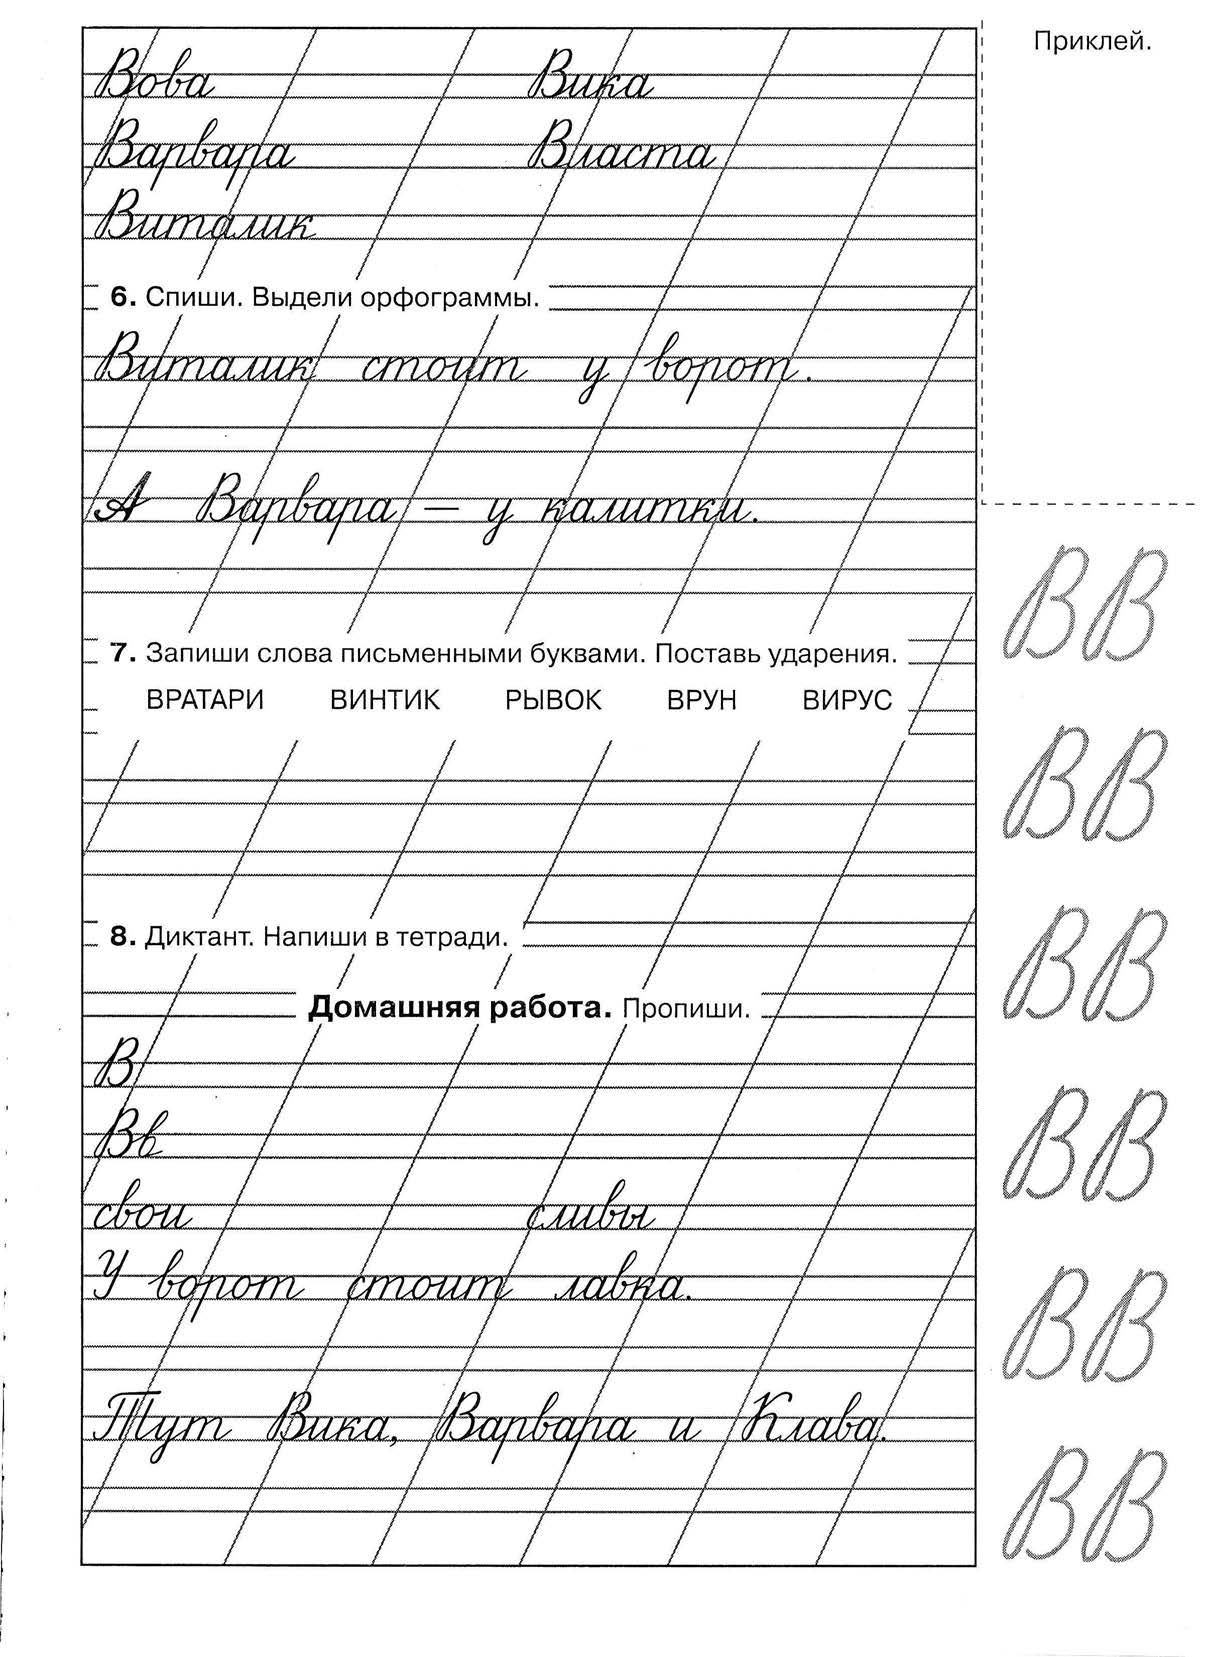 Приклей.
Вова Вика
Варвара Власта
Виталик
6. Спиши. Выдели орфограммы.
Виталик стоит у ворот.
А Варвара — у калитки.
7. Запиши слова письменными буквами. Поставь ударения.
ВРАТАРИ ВИНТИК РЫВОК ВРУН ВИРУС
8. Диктант. Напиши в тетради.
Домашняя работа. Пропиши.
В
Вв
свои сливы
У ворот стоит лавка.
Тут Вика, Варвара и Клава.
ВВ
ВВ
ВВ
ВВ
ВВ
ВВ